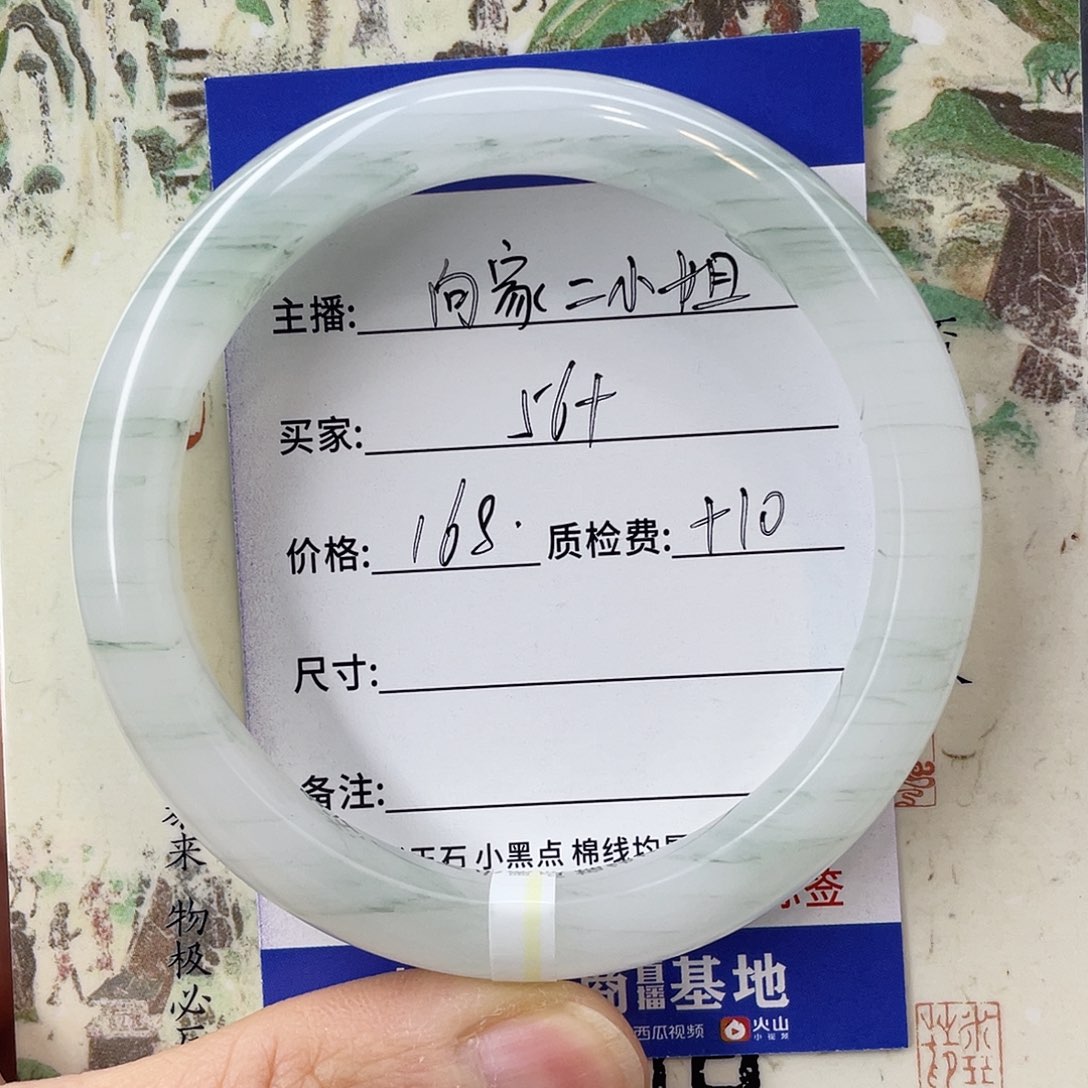 主播: 向家二小姐
买家: 56+
价格: 168. 质检费: +10
尺寸:
备注:
玉石 小黑点 棉线均
签
商直播基地
西瓜视频 火山小视频
来
物极必